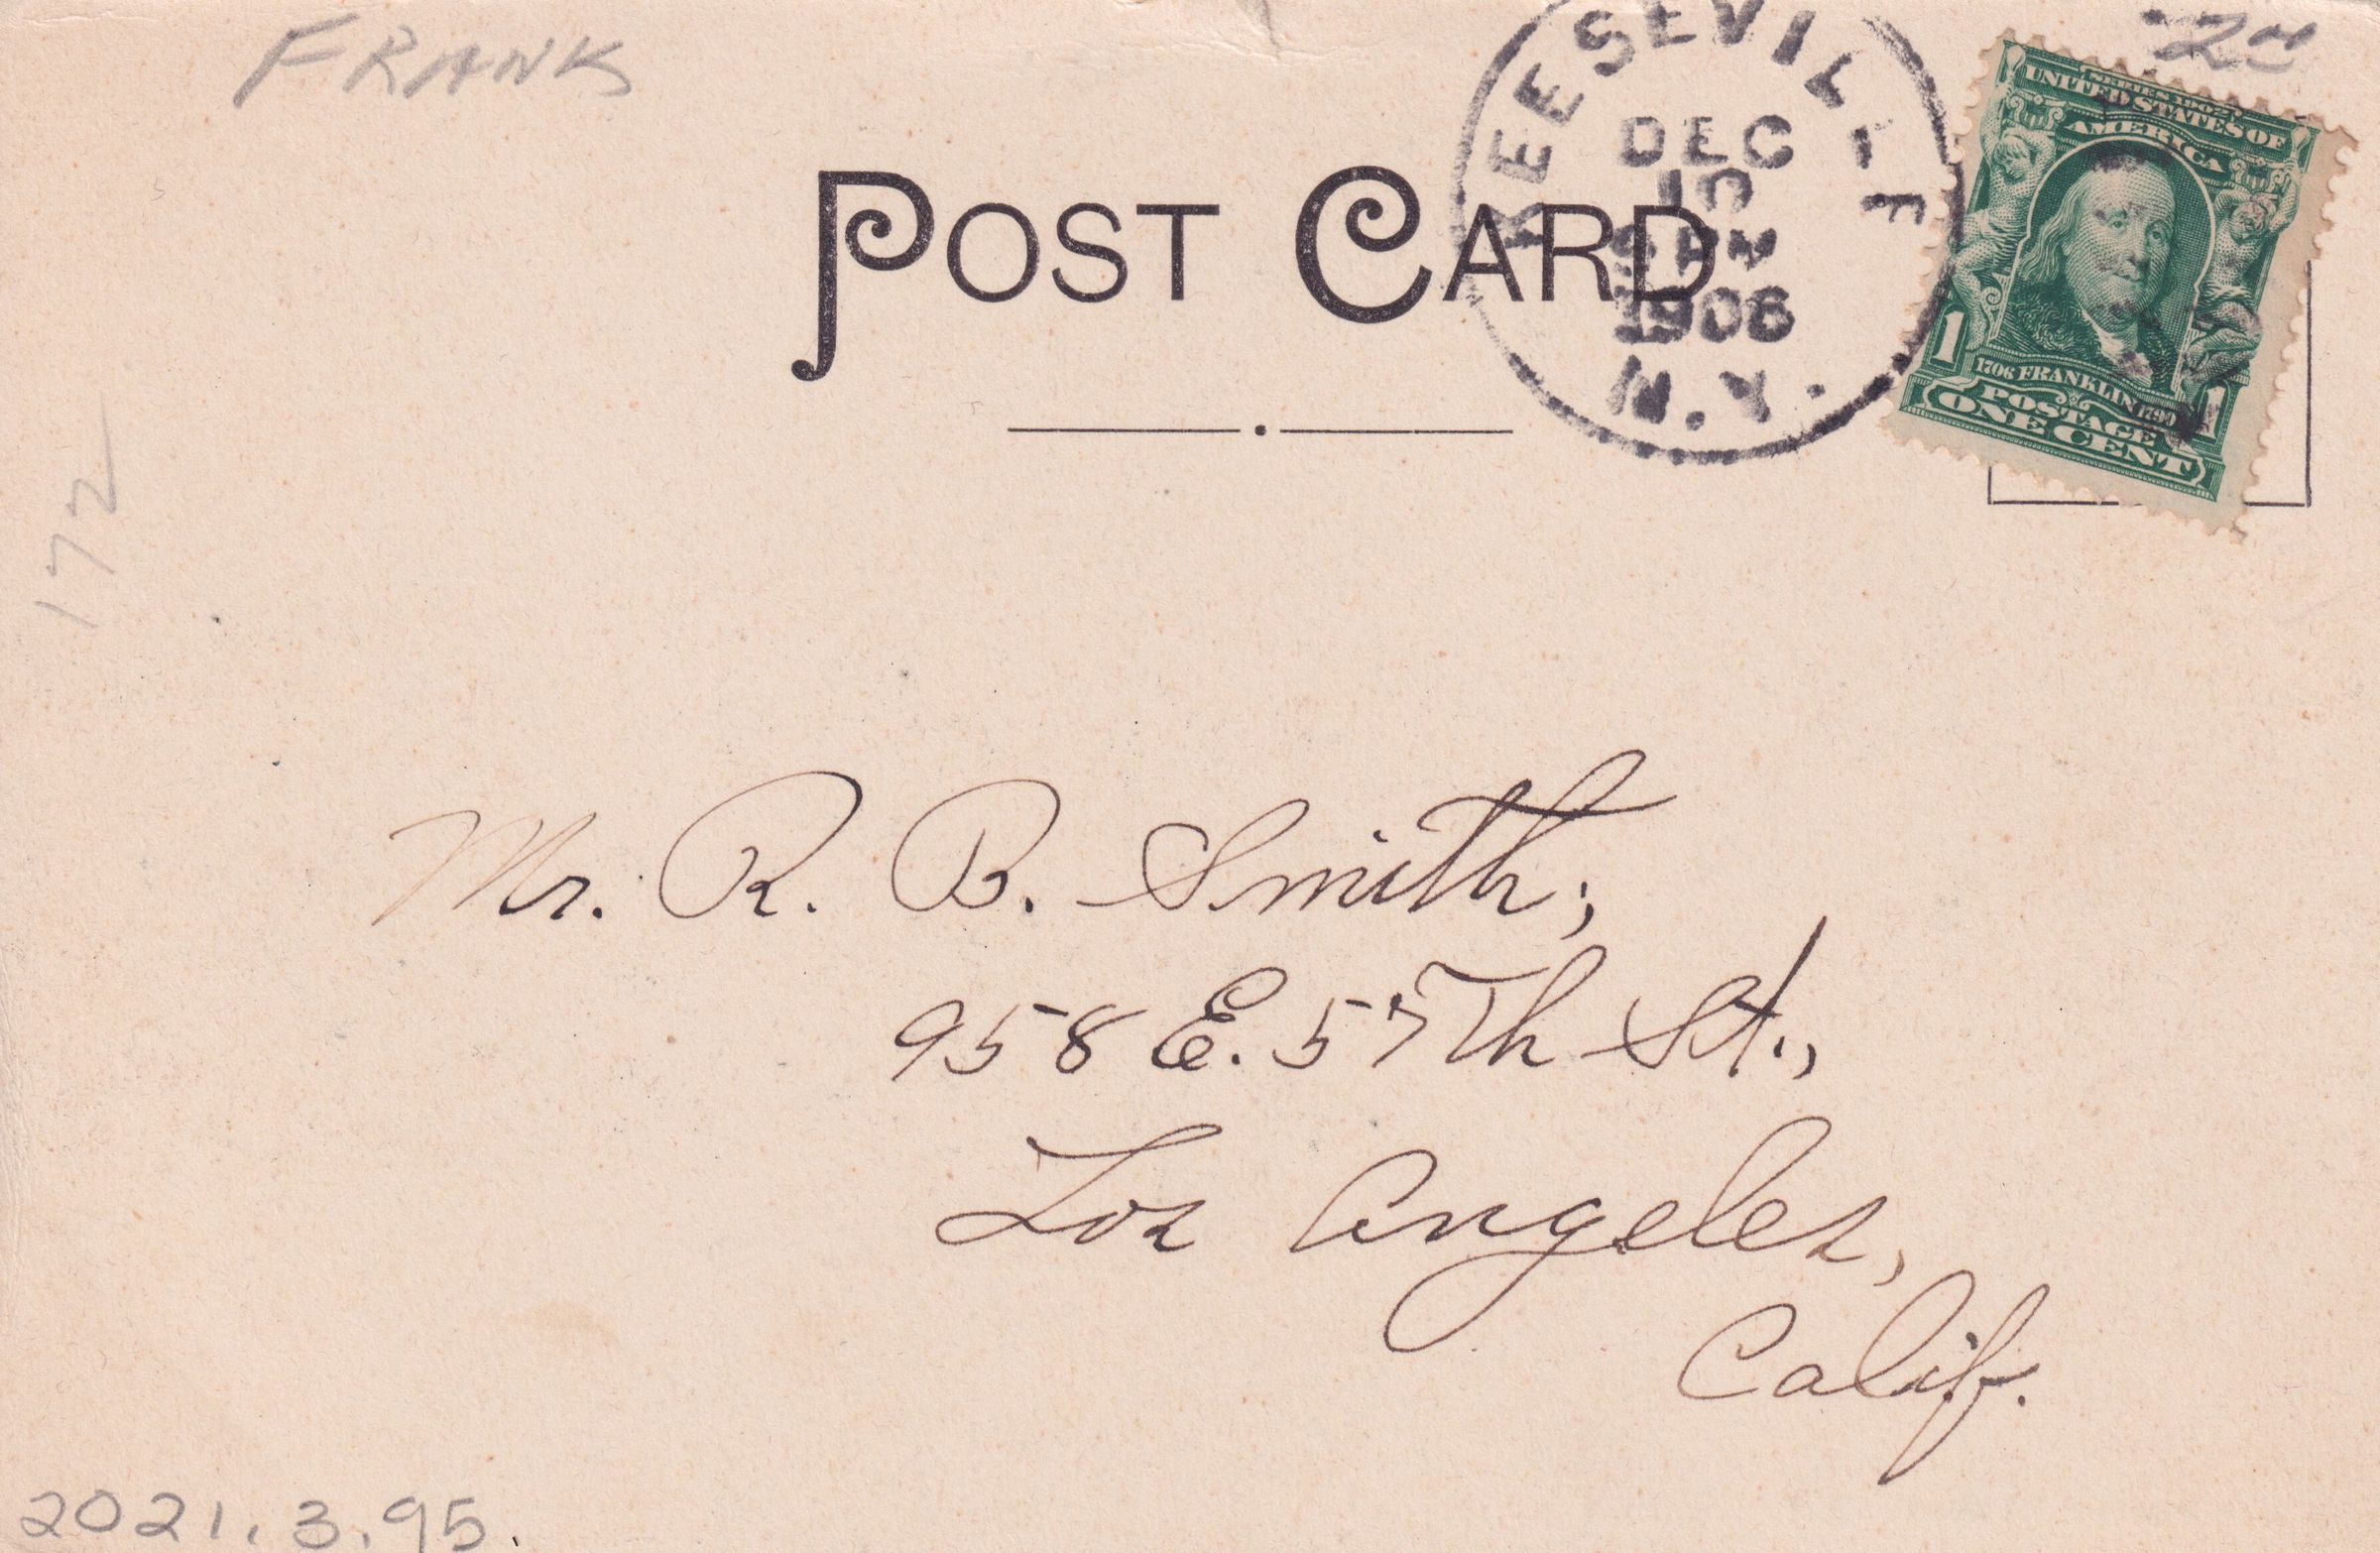 FRANK
POST CARD
KEESEVILLE
DEC
10
1906
N.Y.
SERIES 1902
UNITED STATES OF
AMERICA
1 1
1706 FRANKLIN 1790
POSTAGE
ONE CENT
172
Mr. R. B. Smith,
958 E. 57th St.,
Los Angeles,
Calif.
2021.3.95.